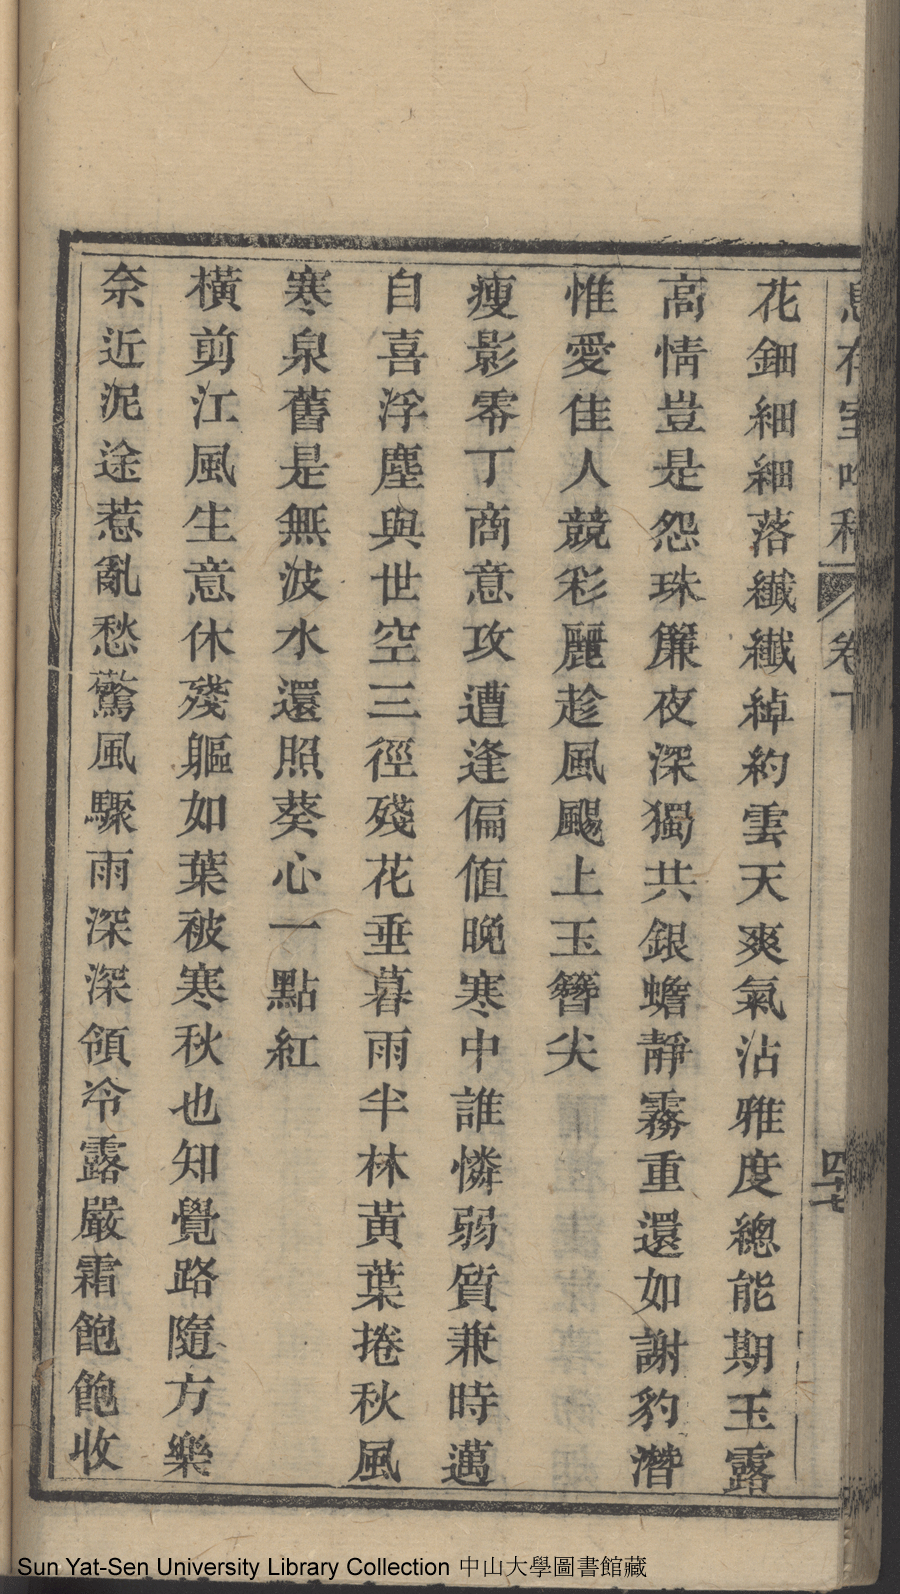 花鈿細細落纖纖綽約雲天爽氣沾雅度總能期玉露
高情豈是怨珠簾夜深獨共銀蟾靜霧重還如謝豹潛
惟愛佳人競彩麗趁風颺上玉簪尖
瘦影零丁商意攻遭逢偏値晚寒中誰憐弱質兼時邁
自喜浮塵與世空三徑殘花垂暮雨半林黃葉捲秋風
寒泉舊是無波水還照葵心一點紅
橫剪江風生意休殘軀如葉被寒秋也知覺路隨方樂
奈近泥途惹亂愁驚風驟雨深深領冷露嚴霜飽飽收
卷下
四十七
Sun Yat-Sen University Library Collection 中山大學圖書館藏